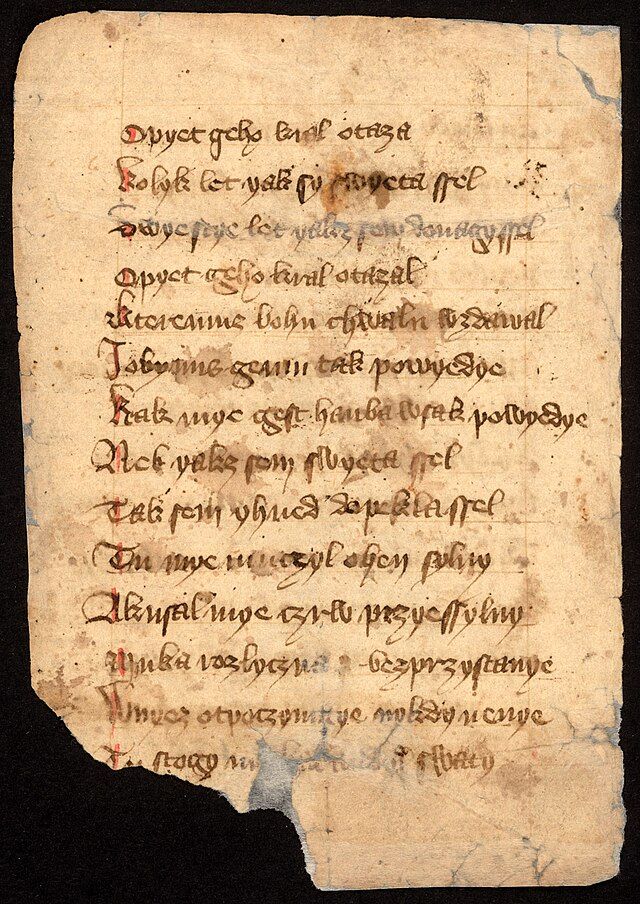 Opyet geho kral otaza
kolyk let yak sy swyeta ssel
Dwye stye let yakz sem donawyssel
Opyet geho kral otazal
Kteremus bohu chwalu wzdawal
Jobynus gemu tak powyedye
Kak mye gest hanba wsak powyedye
Nek yakz sem swyeta ssel
Tak sem yhned dopekla ssel
Tu mye muczyl ohen sylny
Akusal mye czrw przyessylny
Muka rozlyczna bezprzystanye
Wnyez otpoczynuczye nykdy nenye
Tu stogy swaty